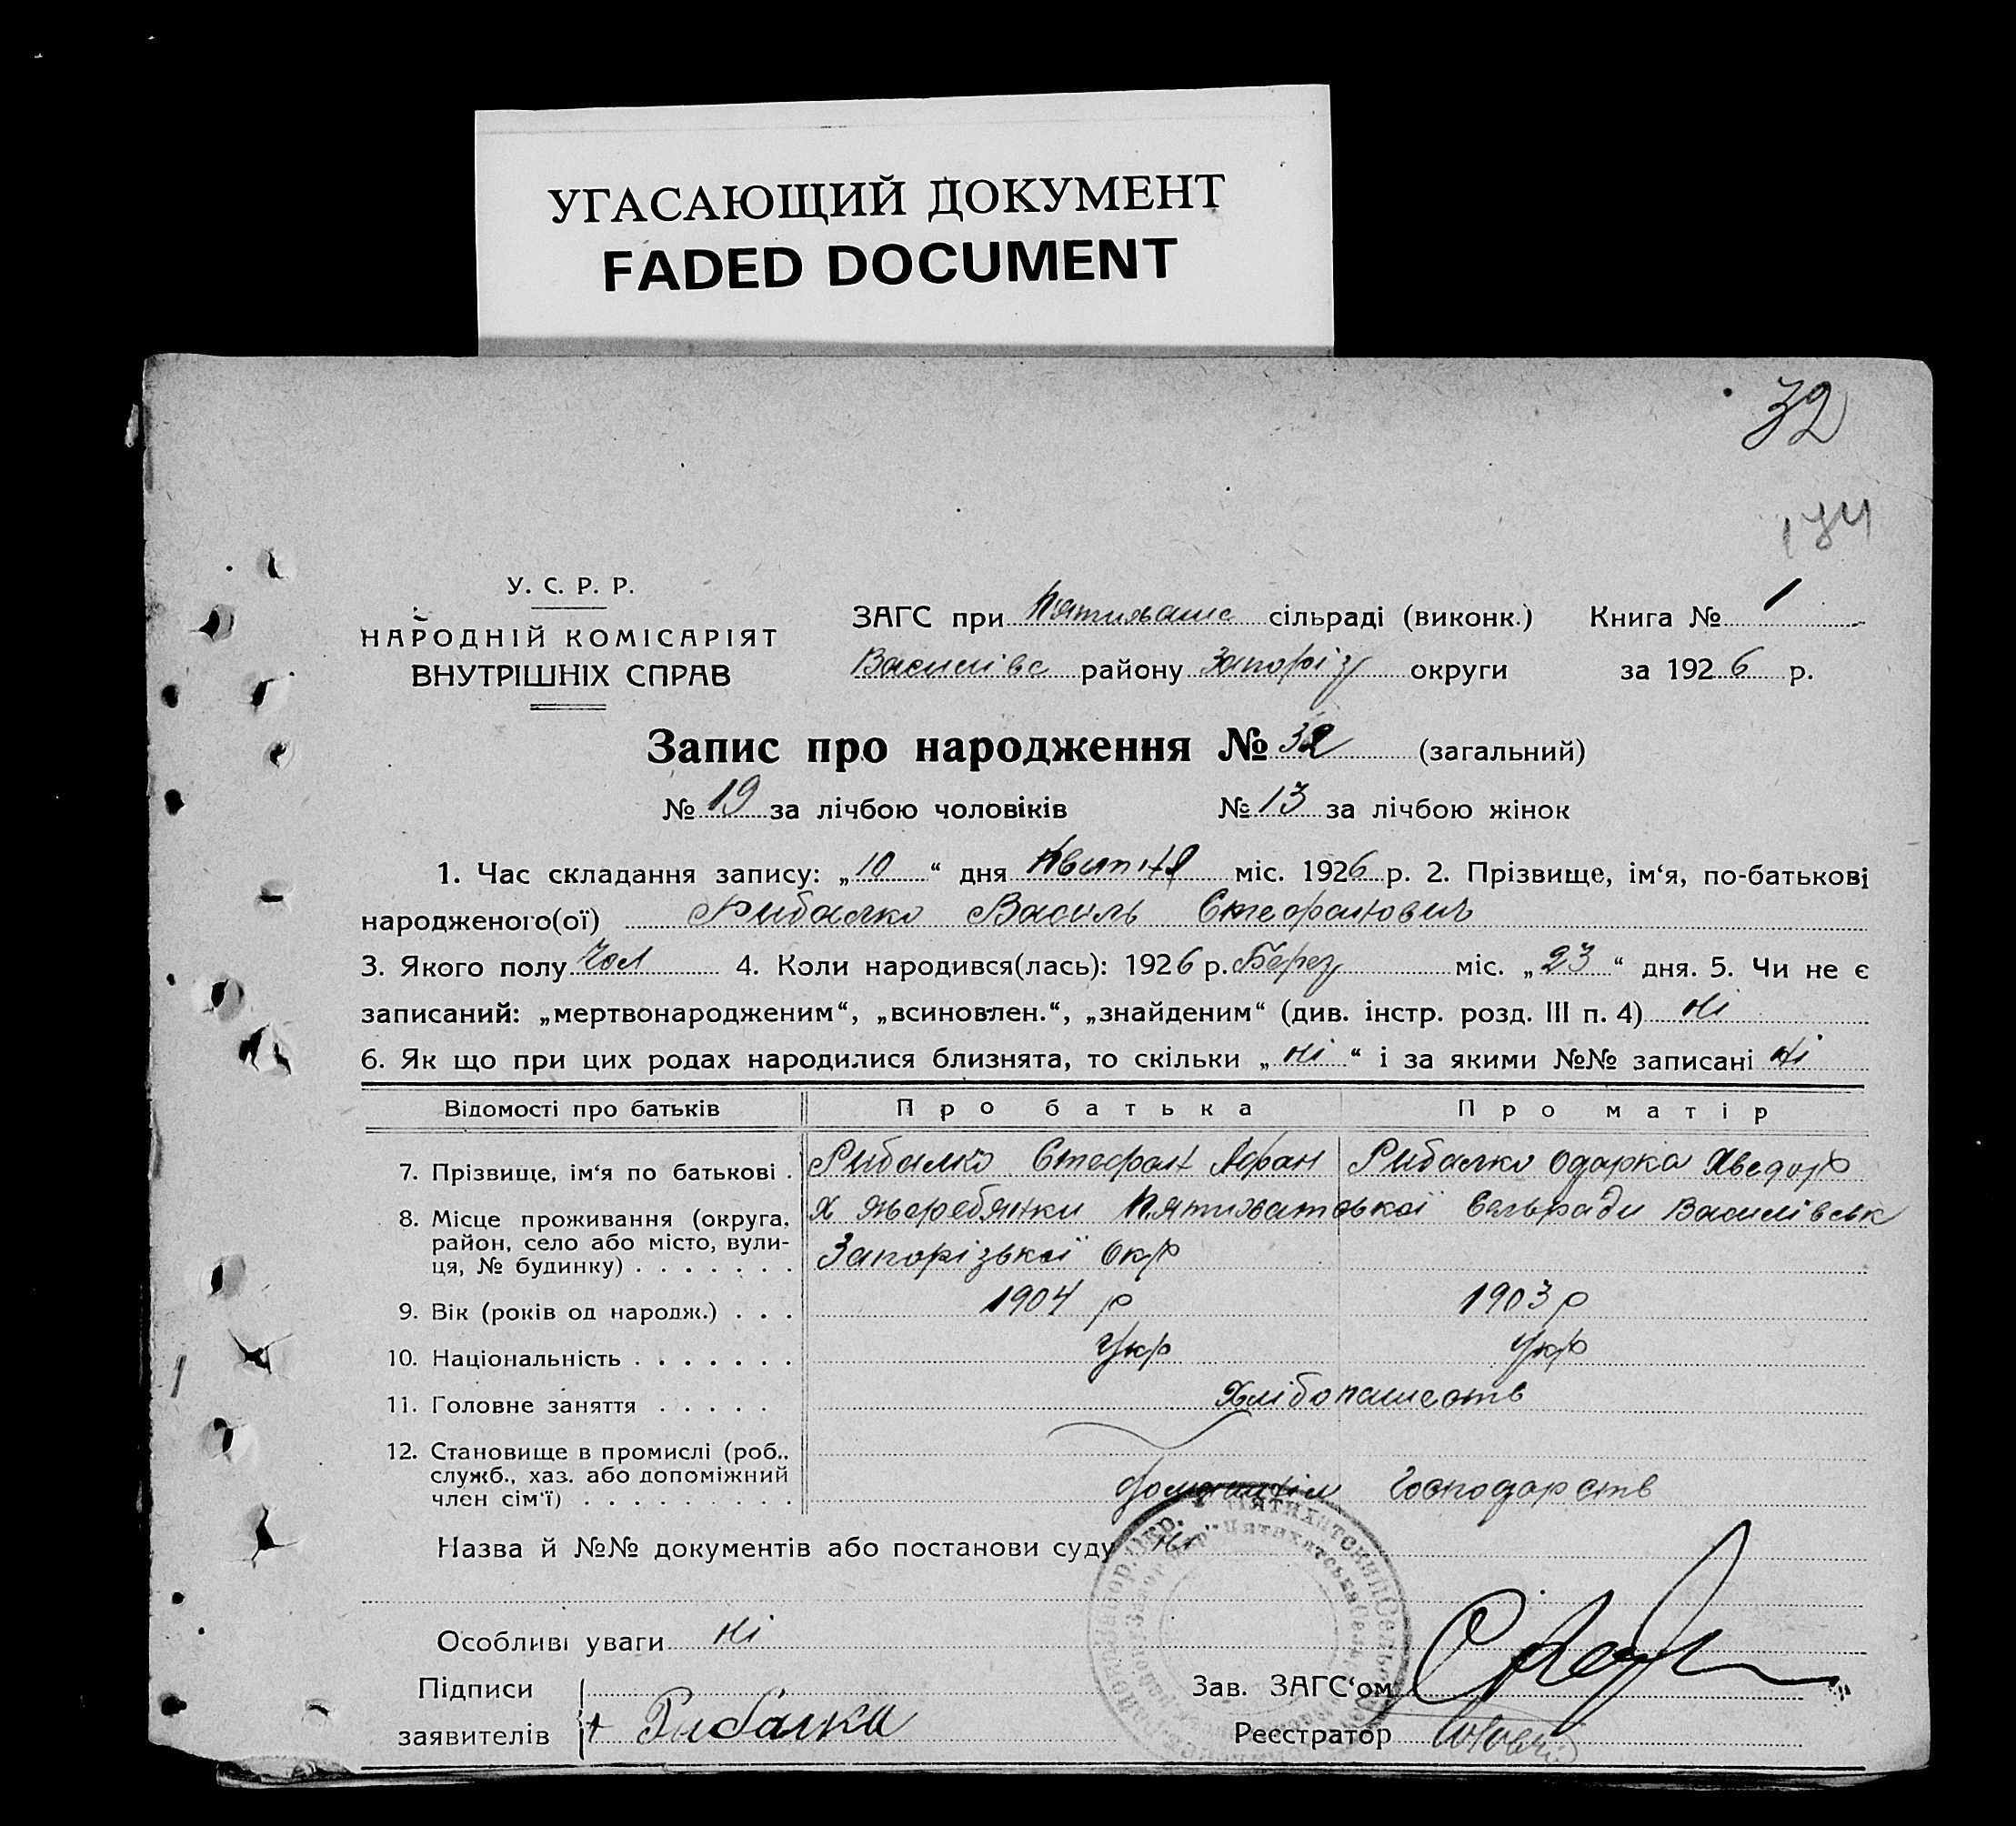 УГАСАЮЩИЙ ДОКУМЕНТ
FADED DOCUMENT
32
184
У. С. Р. Р.
НАРОДНІЙ КОМІСАРІЯТ
ВНУТРІШНІХ СПРАВ
ЗАГС при Пятихатс сільраді (виконк.) Книга № 1
Василівс району Запоріз округи за 1926 р.
Запис про народження № 32 (загальний)
№ 19 за лічбою чоловіків № 13 за лічбою жінок
1. Час складання запису: „10“ дня Квітня міс. 1926 р. 2. Прізвище, ім‘я, по-батькові
народженого(ої) Рибалко Василь Стефанович
3. Якого полу Чол 4. Коли народився(лась): 1926 р. Берез міс. „23“ дня. 5. Чи не є
записаний: „мертвонародженим“, „всиновлен.“, „знайденим“ (див. інстр. розд. III п. 4) ні
6. Як що при цих родах народилися близнята, то скільки „ні“ і за якими №№ записані ні
Відомості про батьків Про батька Про матір
7. Прізвище, ім‘я по батькові . Рибалко Стефан Афан Рибалко Одарка Хведор
8. Місце проживання (округа, район, село або місто, вулиця, № будинку) . . . . . . . Х Жеребянки Пятихатської Сельради Василівськ
Запорізької Окр
9. Вік (років од народж.) . . . 1904 р 1903 р
10. Національність . . . . . . . Укр Укр
11. Головне заняття . . . . . Хлібопашеств
12. Становище в промислі (роб., служб., хаз. або допоміжний член сім‘ї) . . . . . . . . . Господарств
Назва й №№ документів або постанови суду ні
Особливі уваги ні
Підписи
заявителів + Рибалка
Зав. ЗАГС‘ом
Реєстратор